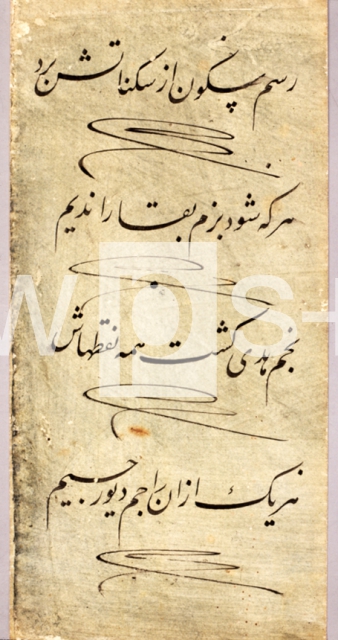 رسم سکون از سکناتش برد
هر که شود بزم بقا را ندیم
نجم هدی گشت همه نقطهاش
هر یک ازان راجم دیو رجیم